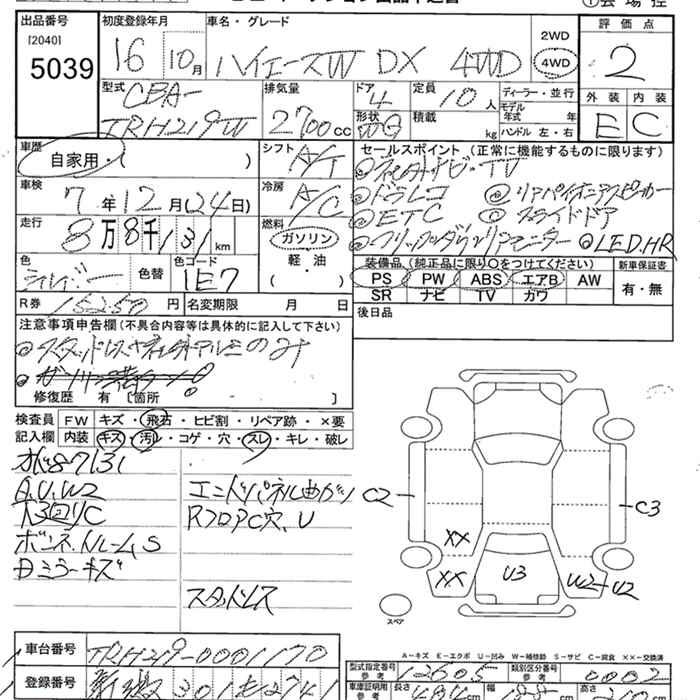 出品番号
[2040]
5039
初度登録年月
16 10月
車名・グレード
ハイエースW DX 4WD
2WD
4WD
評価点
2
外装 内装
E C
型式
CBA-
TRH219W
排気量
2700cc
ドア
4
形状
定員
10人
積載
kg
ディーラー・並行
モデル
年式 年
ハンドル 左・右
車歴
自家用・( )
シフト
A/T
車検
7年12月(24日)
冷房
A/C
走行
8万8千131km
燃料
ガソリン
軽・油
( )
色
シルバー
色替
色コード
1E7
R券
15250円
名変期限 月 日
セールスポイント(正常に機能するものに限ります)
ナビ・TV
◎ドラレコ
◎リアパイオニアスピーカー
◎ETC
◎スライドドア
◎フリップダウンリアモニター ◎LED.HR
装備品(純正品に限り○をつけてください)
新車保証書
PS PW ABS エアB AW
SR ナビ TV カワ
有・無
後日品
注意事項申告欄(不具合内容等は具体的に記入して下さい)
◎スタッドレスタイヤ
のみ
修復歴 有〔箇所 〕
検査員
記入欄
FW キズ・飛石・ヒビ割・リペア跡・×要
内装 キズ・汚れ・コゲ・穴・スレ・キレ・破レ
A.U.W2
下回りC
S
ミラーキズ
エンドパネル曲がり
RフロアC穴、U
スタットレス
C2
C3
XX
XX
U3
W2 U2
スペア
A-キズ E-エクボ U-凹み W-補修跡 S-サビ C-腐食 ××-交換済
車台番号
TRH219-0001170
登録番号
301
型式指定番号
参考
12605
類別区分番号
参考
0002
車庫証明用
参考
長さ
484cm
幅
cm
高さ
cm